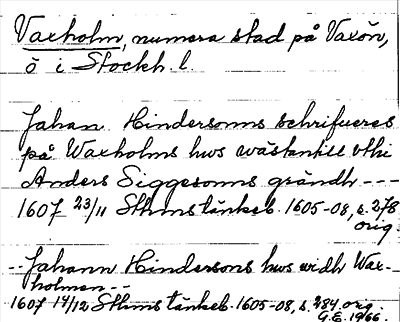 Vaxholm, numera stad på Vaxön,
ö i Stockh. l.
Johan Hindersonns schrifueres
på Waxholms hws wästantill vthi
Anders Siggesonns grändh ---
1607 23/11 Sthms tänkeb. 1605-08, s. 278
orig.
-- Johann Hindersons hws widh Wax-
holmen --
1607 14/12 Sthms tänkeb. 1605-08, s. 284 orig.
G.E. 1966.